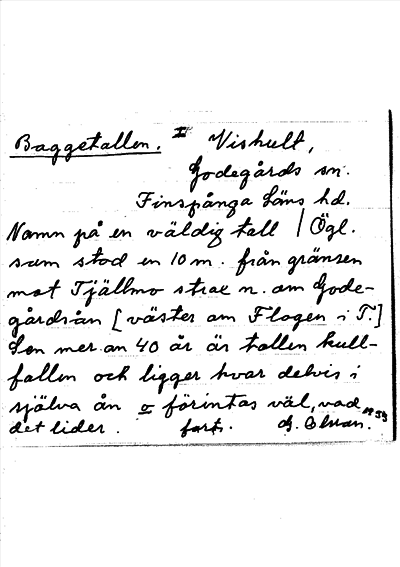 Baggetallen. I Viskult,
Godegårds sn.
Finspånga Läns hd.
Namn på en väldig tall / Ögl.
som stod en 10 m. från gränsen
mot Tjällmo strax n. om Gode-
gårdsån [väster om Flogen i T.]
Sen mer än 40 år är tallen kull-
fallen och ligger kvar delvis i
själva ån o förintas väl, vad
det lider. fort. 1933